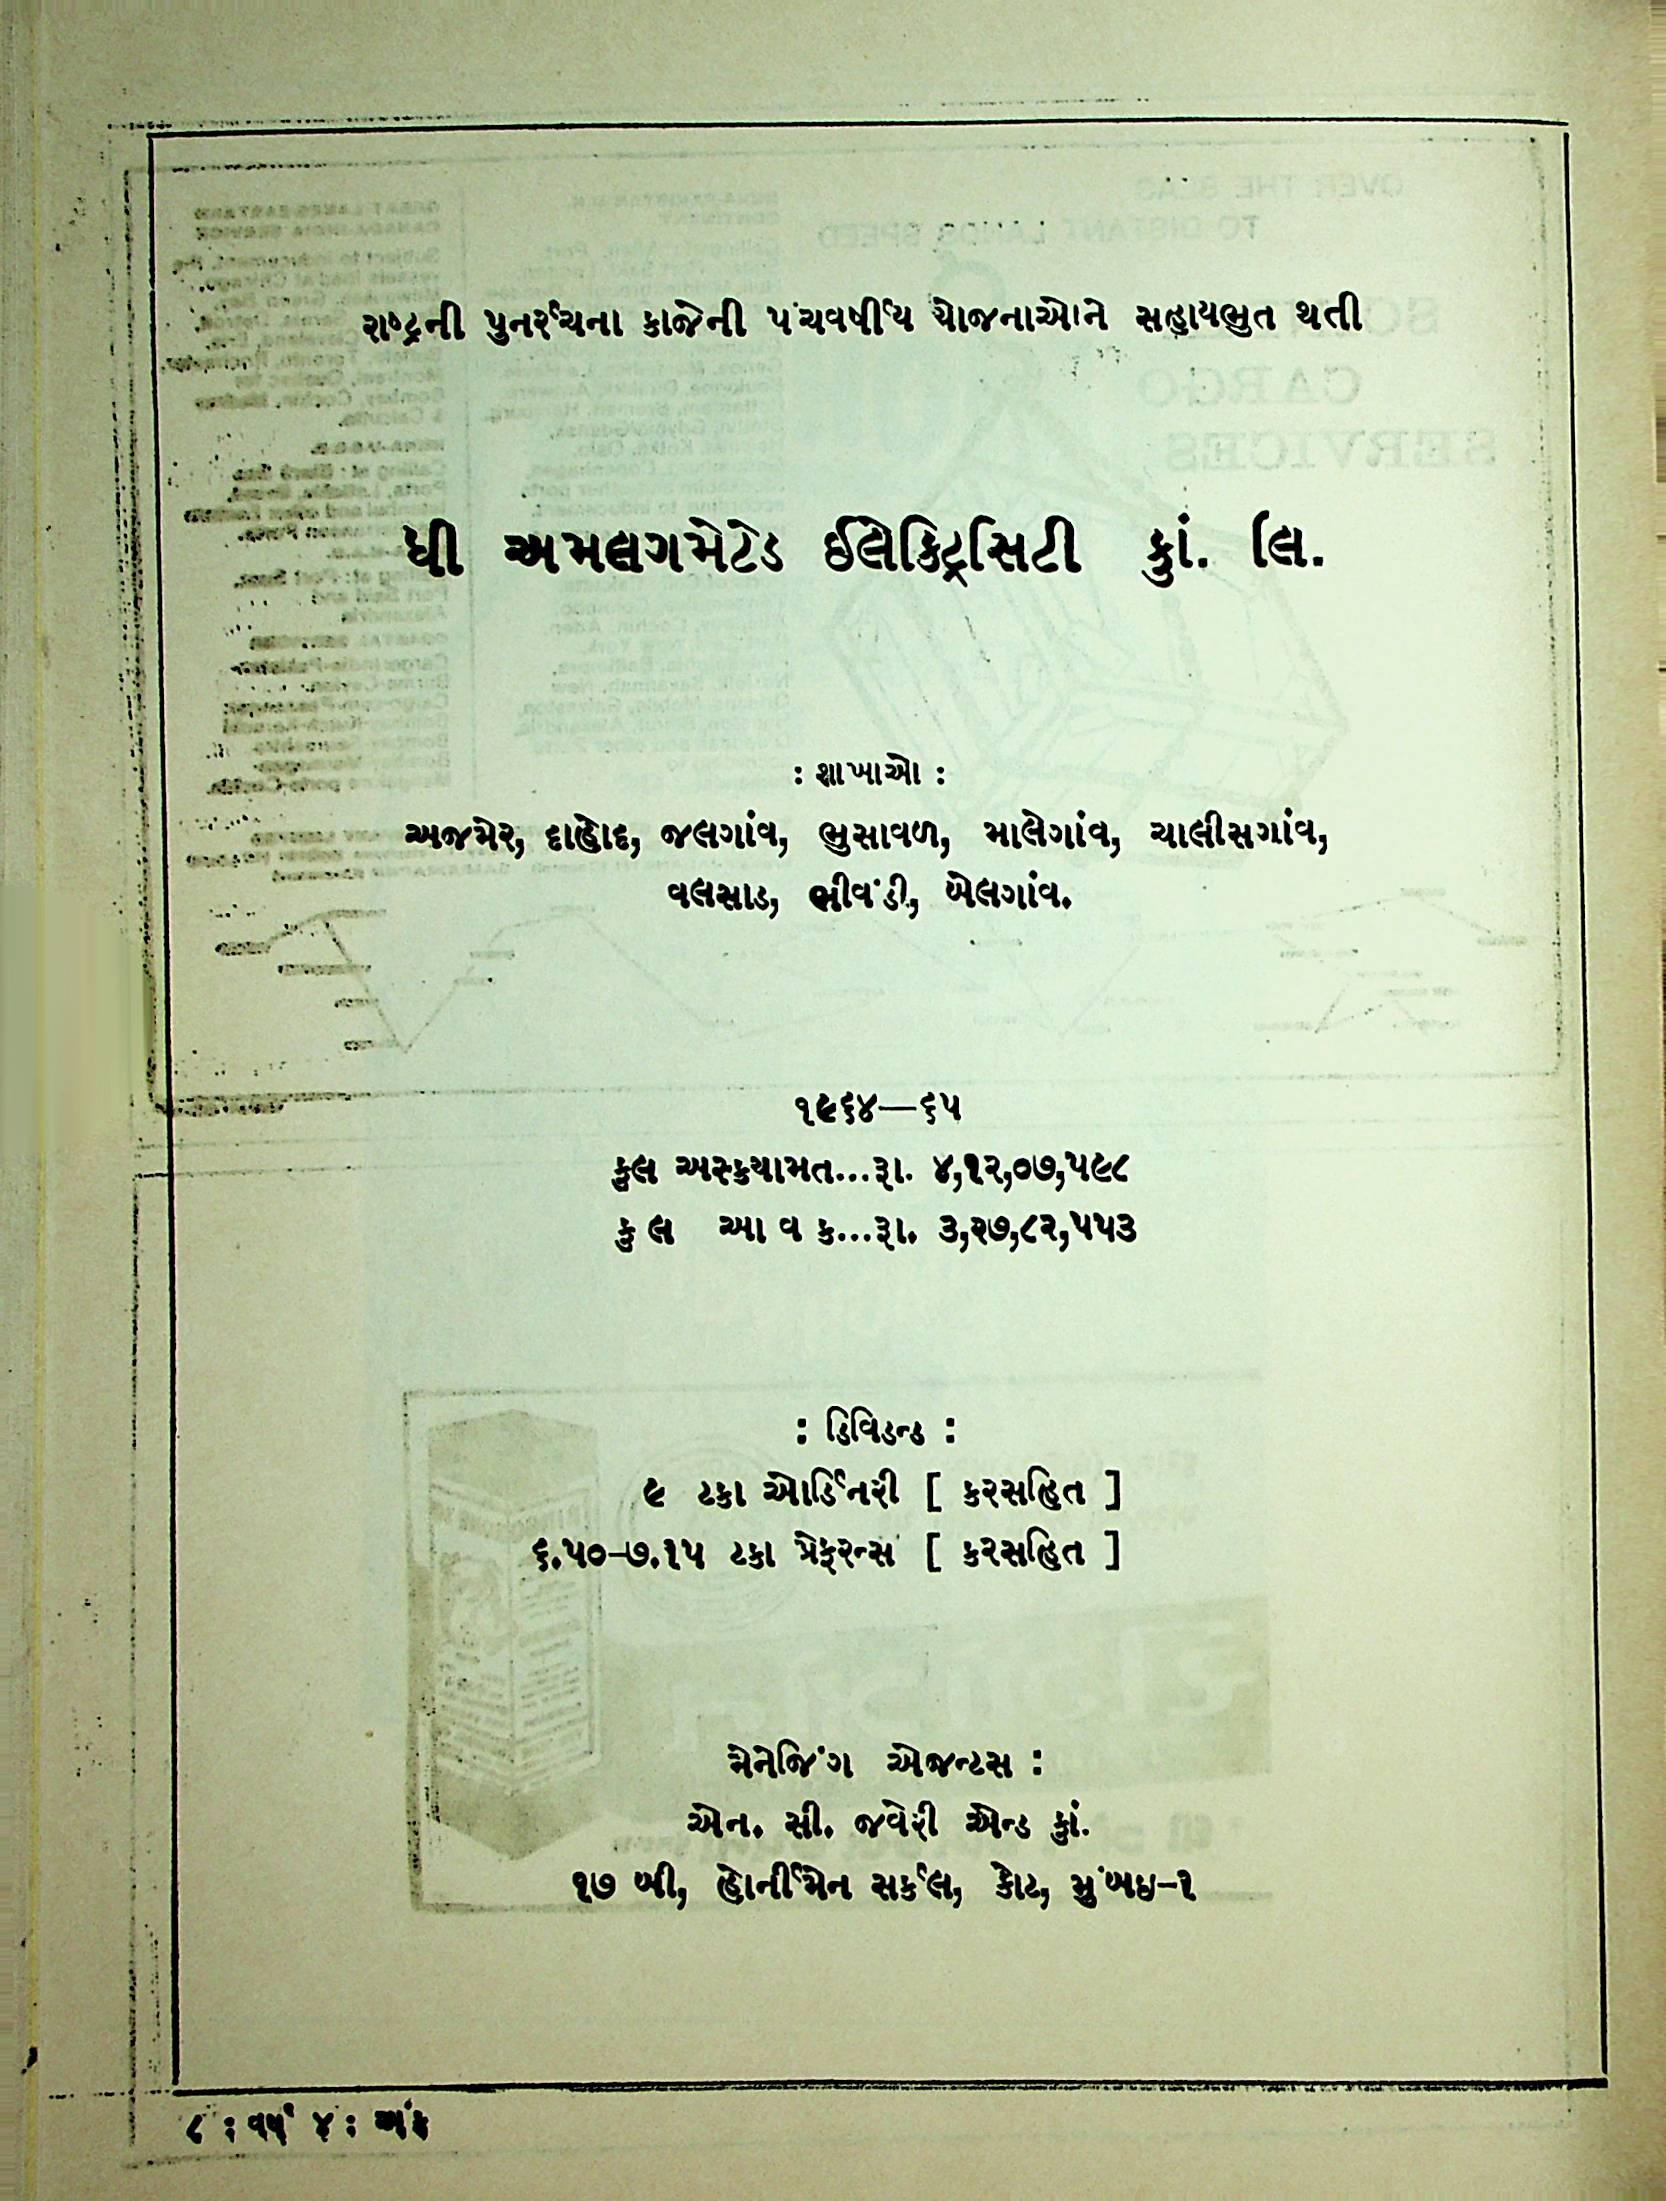 રાષ્ટ્રની પુનર્રચના કાજેની પંચવર્ષીય યોજનાઓને સહાયભુત થતી
ધી અમલગમેટેડ ઈલેક્ટ્રિસિટી કુાં. લિ.
: શાખાઓ :
અજમેર, દાહોદ, જલગાંવ, ભુસાવળ, માલેગાંવ, ચાલીસગાંવ,
વલસાડ, ભીવંડી, બેલગાંવ.
૧૯૬૪—૬૫
કુલ અસ્કયામત...રૂા. ૪,૧૨,૦૭,૫૯૮
કુ લ આ વ ક...રૂા. ૩,૨૭,૮૨,૫૫૩
: ડિવિડન્ડ :
૯ ટકા ઓર્ડિનરી [ કરસહિત ]
૬.૫૦-૭.૧૫ ટકા પ્રેફરન્સ [ કરસહિત ]
મેનેજિંગ એજન્ટસ :
એન. સી. જવેરી એન્ડ કુાં.
૧૭ બી, હોર્નીમેન સર્કલ, કોટ, મુંબઇ-૧
૮ : વર્ષ ૪ : અંક